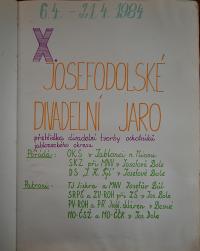 6.4. - 21.4. 1984
X.
JOSEFODOLSKÉ
DIVADELNÍ JARO
přehlídka divadelní tvorby ochotníků
jabloneckého okresu
Pořádá: OKS v Jablonci n. Nisou
SKZ při MNV v Josefově Dole
DS „J. K. Tyl" v Josefově Dole
Patroni: TJ Jiskra a MNV Josefův Důl
SRPŠ a ZV-ROH při ZŠ v Jos. Dole
PV-ROH a
MO-ČSŽ a MO-ČČK v Jos. Dole